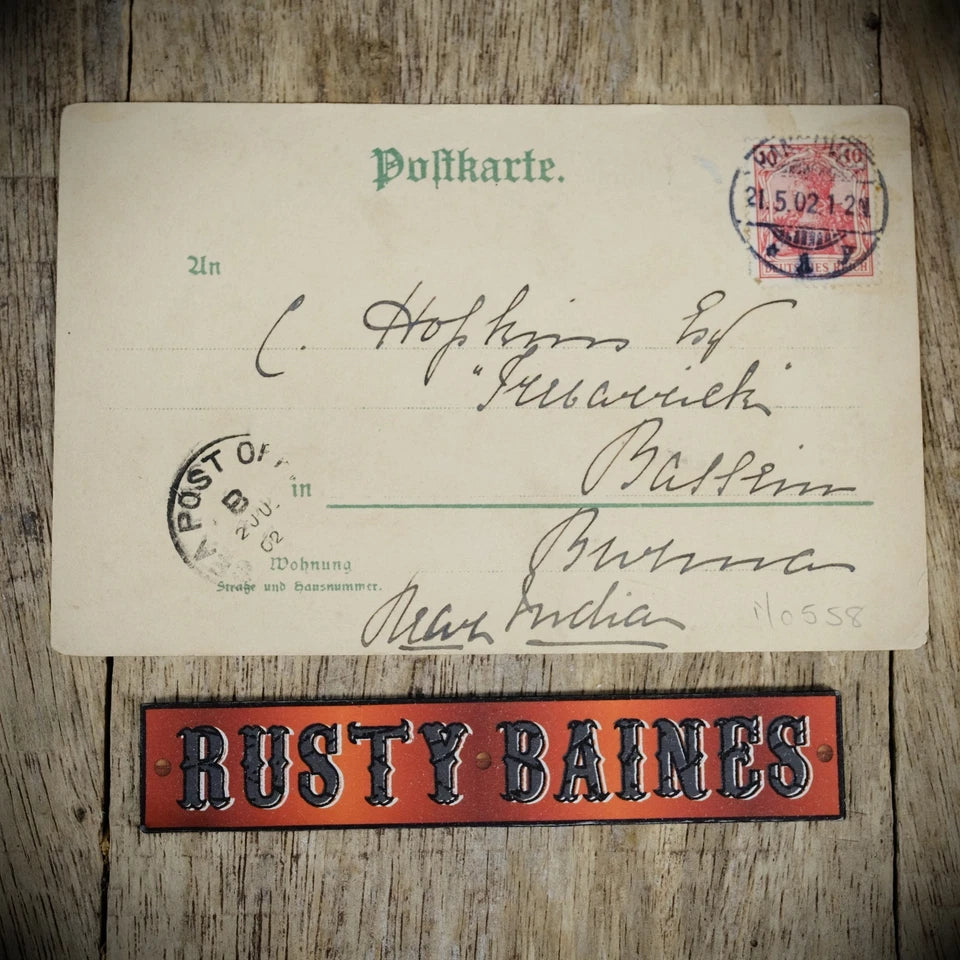 Postkarte.
10
21.5.02.1-2N
DEUTSCHES REICH
An
C. Hopkins Esq
"Trebarrick"
Bassein
in
SEA POST OFF
B
2 JU
02
Burma
Wohnung
Straße und Hausnummer.
Near India
RUSTY BAINES